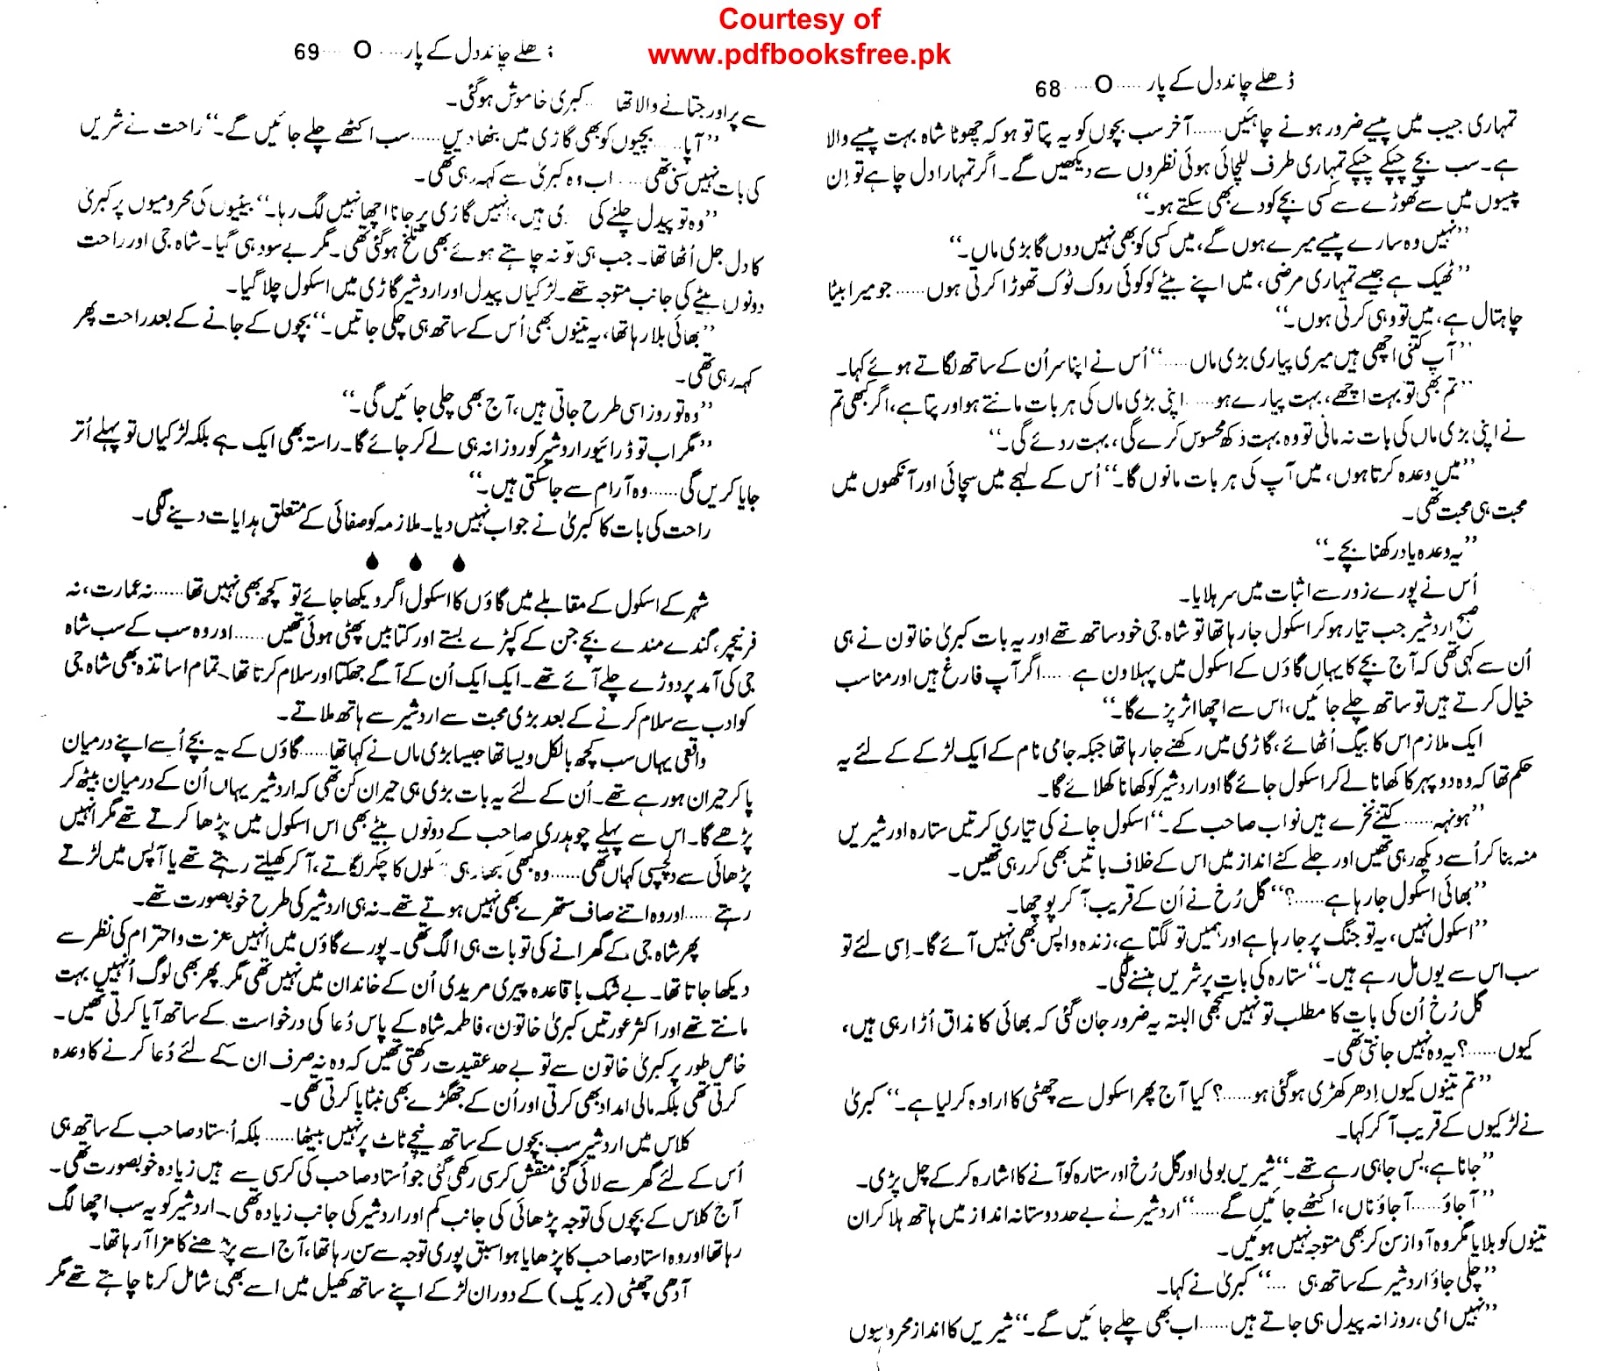 Courtesy of
www.pdfbooksfree.pk
ڈھلے چاند دل کے پار ..... O ..... 68
تمہاری جیب میں پیسے ضرور ہونے چاہئیں...... آخر سب بچوں کو یہ پتا تو ہو کہ چھوٹا شاہ بہت پیسے والا
ہے۔ سب بچے چپکے چپکے تمہاری طرف للچائی ہوئی نظروں سے دیکھیں گے۔ اگر تمہارا دل چاہے تو اِن
پیسوں میں سے تھوڑے سے کسی بچے کو دے بھی سکتے ہو۔‘‘
’’نہیں وہ سارے پیسے میرے ہوں گے، میں کسی کو بھی نہیں دوں گا بڑی ماں۔‘‘
’’ٹھیک ہے جیسے تمہاری مرضی، میں اپنے بیٹے کو کوئی روک ٹوک تھوڑا کرتی ہوں...... جو میرا بیٹا
چاہتا ہے، میں تو وہی کرتی ہوں۔‘‘
’’آپ کتنی اچھی ہیں میری پیاری بڑی ماں......‘‘ اُس نے اپنا سر اُن کے ساتھ لگاتے ہوئے کہا۔
’’تم بھی تو بہت اچھے، بہت پیارے ہو...... اپنی بڑی ماں کی ہر بات مانتے ہو اور پتا ہے، اگر کبھی تم
نے اپنی بڑی ماں کی بات نہ مانی تو وہ بہت دُکھ محسوس کرے گی، بہت روئے گی۔‘‘
’’میں وعدہ کرتا ہوں، میں آپ کی ہر بات مانوں گا۔‘‘ اُس کے لہجے میں سچائی اور آنکھوں میں
محبت ہی محبت تھی۔
’’یہ وعدہ یاد رکھنا بچے۔‘‘
اُس نے پورے زور سے اثبات میں سر ہلایا۔
صبح اردشیر جب تیار ہو کر اسکول جا رہا تھا تو شاہ جی خود ساتھ تھے اور یہ بات کبریٰ خاتون نے ہی
اُن سے کہی تھی کہ آج بچے کا یہاں گاؤں کے اسکول میں پہلا دن ہے ..... اگر آپ فارغ ہیں اور مناسب
خیال کرتے ہیں تو ساتھ چلے جائیں، اس سے اچھا اثر پڑے گا۔‘‘
ایک ملازم اس کا بیگ اُٹھائے، گاڑی میں رکھنے جا رہا تھا جبکہ جامی نام کے ایک لڑکے کے لئے یہ
حکم تھا کہ وہ دوپہر کا کھانا لے کر اسکول جائے گا اور اردشیر کو کھانا کھلائے گا۔
’’ہونہہ...... کتنے نخرے ہیں نواب صاحب کے۔‘‘ اسکول جانے کی تیاری کرتیں ستارہ اور شیریں
منہ بنا کر اُسے دیکھ رہی تھیں اور جلے کٹے انداز میں اس کے خلاف باتیں بھی کر رہی تھیں۔
’’بھائی اسکول جا رہا ہے......؟‘‘ گل رُخ نے اُن کے قریب آ کر پوچھا۔
’’اسکول نہیں، یہ تو جنگ پر جا رہا ہے اور ہمیں تو لگتا ہے، زندہ واپس بھی نہیں آئے گا۔ اِسی لئے تو
سب اس سے یوں مل رہے ہیں۔‘‘ ستارہ کی بات پر شریں ہنسنے لگی۔
گل رُخ اُن کی بات کا مطلب تو نہیں سمجھی البتہ یہ ضرور جان گئی کہ بھائی کا مذاق اُڑا رہی ہیں،
کیوں......؟ یہ وہ نہیں جانتی تھی۔
’’تم تینوں کیوں اِدھر کھڑی ہو گئی ہو......؟ کیا آج پھر اسکول سے چھٹی کا ارادہ کر لیا ہے۔‘‘ کبریٰ
نے لڑکیوں کے قریب آ کر کہا۔
’’جانا ہے، بس جا ہی رہے تھے۔‘‘ شیریں بولی اور گل رُخ اور ستارہ کو آنے کا اشارہ کر کے چل پڑی۔
’’آ جاؤ...... آ جاؤ ناں، اکٹھے جائیں گے......‘‘ اردشیر نے بے حد دوستانہ انداز میں ہاتھ ہلا کر ان
تینوں کو بلایا مگر وہ آواز سن کر بھی متوجہ نہیں ہوئیں۔
’’چلی جاؤ اردشیر کے ساتھ ہی ....‘‘ کبریٰ نے کہا۔
’’نہیں امی، روزانہ پیدل ہی جاتے ہیں...... اب بھی چلے جائیں گے۔‘‘ شیریں کا انداز محرومیوں
ڈھلے چاند دل کے پار ..... O .... 69
سے پر اور جتانے والا تھا کبریٰ خاموش ہو گئی۔
’’آپا..... بچیوں کو بھی گاڑی میں بٹھا دیں...... سب اکٹھے چلے جائیں گے۔‘‘ راحت نے شریں
کی بات نہیں سنی تھی..... اب وہ کبریٰ سے کہہ رہی تھی۔
’’وہ تو پیدل چلنے کی ہیں، اُنہیں گاڑی پر جانا اچھا نہیں لگ رہا۔‘‘ بیٹیوں کی محرومیوں پر کبریٰ
کا دل جل اُٹھا تھا۔ جب ہی تو نہ چاہتے ہوئے بھی تلخ ہو گئی تھی۔ مگر بے سود ہی گیا۔ شاہ جی اور راحت
دونوں بیٹے کی جانب متوجہ تھے۔ لڑکیاں پیدل اور اردشیر گاڑی میں اسکول چلا گیا۔
’’بھائی بلا رہا تھا، یہ تینوں بھی اُس کے ساتھ ہی چلی جاتیں۔‘‘ بچوں کے جانے کے بعد راحت پھر
کہہ رہی تھی۔
’’وہ تو روز اسی طرح جاتی ہیں، آج بھی چلی جائیں گی۔‘‘
’’مگر اب تو ڈرائیور اردشیر کو روزانہ ہی لے کر جائے گا۔ راستہ بھی ایک ہے بلکہ لڑکیاں تو پہلے اُتر
جایا کریں گی...... وہ آرام سے جا سکتی ہیں۔‘‘
راحت کی بات کا کبریٰ نے جواب نہیں دیا۔ ملازمہ کو صفائی کے متعلق ہدایات دینے لگی۔
شہر کے اسکول کے مقابلے میں گاؤں کا اسکول اگر دیکھا جائے تو کچھ بھی نہیں تھا...... نہ عمارت، نہ
فرنیچر، گندے مندے بچے جن کے کپڑے بستے اور کتابیں پھٹی ہوئی تھیں...... اور وہ سب کے سب شاہ
جی کی آمد پر دوڑے چلے آئے تھے۔ ایک ایک اُن کے آگے جھکتا اور سلام کرتا تھا۔ تمام اساتذہ بھی شاہ جی
کو ادب سے سلام کرنے کے بعد بڑی محبت سے اردشیر سے ہاتھ ملاتے۔
واقعی یہاں سب کچھ بالکل ویسا تھا جیسا بڑی ماں نے کہا تھا...... گاؤں کے یہ بچے اُسے اپنے درمیان
پا کر حیران ہو رہے تھے۔ اُن کے لئے یہ بات بڑی ہی حیران کُن تھی کہ اردشیر یہاں اُن کے درمیان بیٹھ کر
پڑھے گا۔ اس سے پہلے چوہدری صاحب کے دونوں بیٹے بھی اس اسکول میں پڑھا کرتے تھے مگر اُنہیں
پڑھائی سے دلچسپی کہاں تھی...... وہ کبھی کبھار ہی کا چکر لگاتے، آ کر کھیلتے رہتے تھے یا آپس میں لڑتے
رہتے...... اور وہ اتنے صاف ستھرے بھی نہیں ہوتے تھے۔ نہ ہی اردشیر کی طرح خوبصورت تھے۔
پھر شاہ جی کے گھرانے کی تو بات ہی الگ تھی۔ پورے گاؤں میں اُنہیں عزت و احترام کی نظر سے
دیکھا جاتا تھا۔ بے شک باقاعدہ پیری مریدی اُن کے خاندان میں نہیں تھی مگر پھر بھی لوگ اُنہیں بہت
مانتے تھے اور اکثر عورتیں کبریٰ خاتون، فاطمہ شاہ کے پاس دُعا کی درخواست کے ساتھ آیا کرتی تھیں۔
خاص طور پر کبریٰ خاتون سے تو بے حد عقیدت رکھتی تھیں کہ وہ نہ صرف ان کے لئے دُعا کرنے کا وعدہ
کرتی تھی بلکہ مالی امداد بھی کرتی اور اُن کے جھگڑے بھی نبٹایا کرتی تھی۔
کلاس میں اردشیر سب بچوں کے ساتھ نیچے ٹاٹ پر نہیں بیٹھا...... بلکہ اُستاد صاحب کے ساتھ ہی
اُس کے لئے گھر سے لائی گئی منقش کرسی رکھی گئی جو اُستاد صاحب کی کرسی سے ہیں زیادہ خوبصورت تھی۔
آج کلاس کے بچوں کی توجہ پڑھائی کی جانب کم اور اردشیر کی جانب زیادہ تھی۔ اردشیر کو یہ سب اچھا لگ
رہا تھا اور وہ استاد صاحب کا پڑھایا ہوا سبق پوری توجہ سے سن رہا تھا، آج اسے پڑھنے کا مزا آ رہا تھا۔
آدھی چھٹی (بریک) کے دوران لڑکے اپنے ساتھ کھیل میں اسے بھی شامل کرنا چاہتے تھے مگر